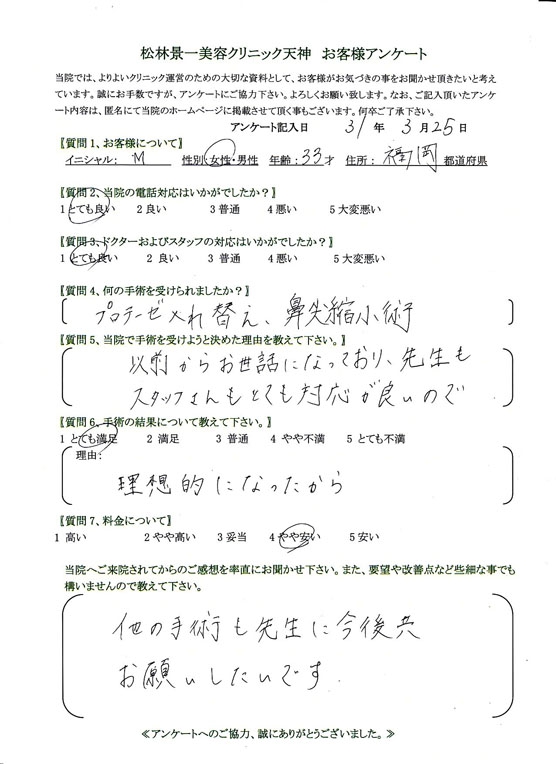 松林景一美容クリニック天神 お客様アンケート
当院では、よりよいクリニック運営のための大切な資料として、お客様がお気づきの事をお聞かせ頂きたいと考え
ています。誠にお手数ですが、アンケートにご協力下さい。よろしくお願い致します。なお、ご記入頂いたアンケ
ート内容は、匿名にて当院のホームページに掲載させて頂く事もございます。何卒ご了承下さい。
アンケート記入日 31 年 3 月 25 日
〖質問1、お客様について〗
イニシャル： M 性別：女性・男性 年齢：33才 住所： 福岡 都道府県
〖質問2、当院の電話対応はいかがでしたか？〗
1 とても良い 2 良い 3 普通 4 悪い 5 大変悪い
〖質問3、ドクターおよびスタッフの対応はいかがでしたか？〗
1 とても良い 2 良い 3 普通 4 悪い 5 大変悪い
〖質問4、何の手術を受けられましたか？〗
プロテーゼ入れ替え、鼻尖縮小術
〖質問5、当院で手術を受けようと決めた理由を教えて下さい。〗
以前からお世話になっており、先生も
スタッフさんもとても対応が良いので
〖質問6、手術の結果について教えて下さい。〗
1 とても満足 2 満足 3 普通 4 やや不満 5 とても不満
理由：
理想的になったから
〖質問7、料金について〗
1 高い 2 やや高い 3 妥当 4 やや安い 5 安い
当院へご来院されてからのご感想を率直にお聞かせ下さい。また、要望や改善点など些細な事でも
構いませんので教えて下さい。
他の手術も先生に今後共
お願いしたいです.
≪アンケートへのご協力、誠にありがとうございました。≫